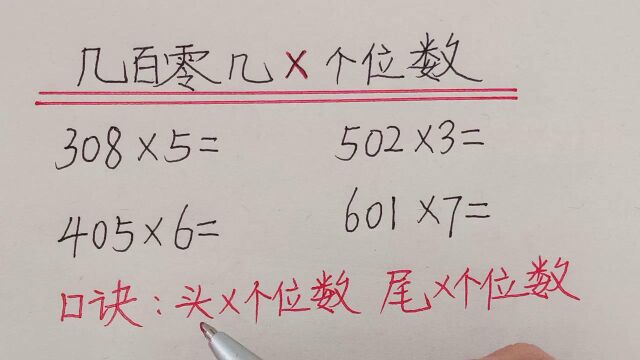 几百零几×个位数
308×5= 502×3=
405×6= 601×7=
口诀：头×个位数 尾×个位数